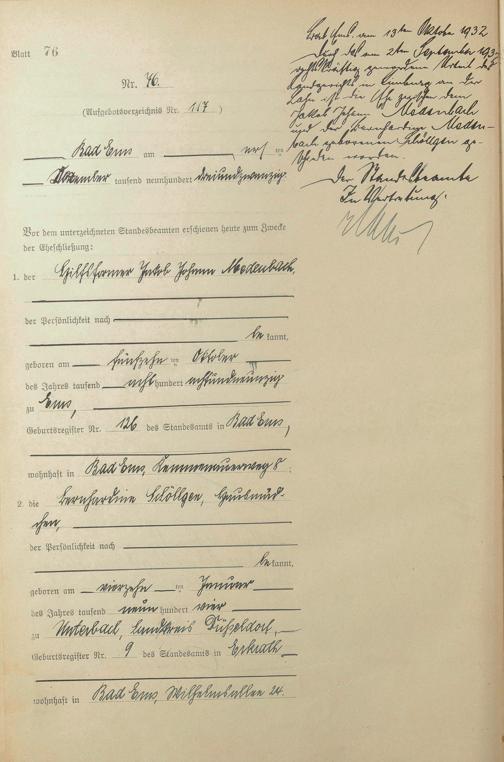 Blatt 76
Nr. 76.
(Aufgebotsverzeichnis Nr. 117)
Bad Ems am ersten
Dezember tausend neunhundert dreiundzwanzig.
Vor dem unterzeichneten Standesbeamten erschienen heute zum Zwecke
der Eheschließung:
1. der Hilfsformer Jakob Johann Modenbach,
der Persönlichkeit nach
bekannt,
geboren am fünfzehnten Oktober
des Jahres tausend achthundert achtundneunzig
zu Ems,
Geburtsregister Nr. 126 des Standesamts in Bad Ems,
wohnhaft in Bad Ems, Kemmenauerweg 8.
2. die Bernhardine Schöllgen, Hausmäd-
chen,
der Persönlichkeit nach
bekannt,
geboren am vierzehnten Januar
des Jahres tausend neunhundert vier
zu Unterbach, Landkreis Düsseldorf,
Geburtsregister Nr. 9 des Standesamts in Erkrath
wohnhaft in Bad Ems, Wilhelmsallee 24.
Bad Ems, am 13ten Oktober 1932
Durch das am 2ten September 193
rechtskräftig gewordene Urteil des
Landgerichts in Limburg an der
Lahn ist die Ehe zwischen dem
Jakob Johann Modenbach
und der Bernhardine Moden-
bach geborenen Schöllgen ge-
schieden worden.
Der Standesbeamte
In Vertretung: